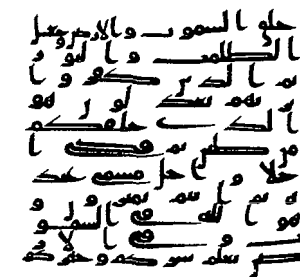 خلق السموت والارض وجعل
الظلمت والنور ث
م الذين كفروا
بربهم يعدلون هو
الذى خلقكم
من طين ثم قضى ا
جلا واجل مسمى عند
ه ثم انتم تمترون و
هو الله فى السمو
ت وفى الار
ض يعلم سركم وجهركم